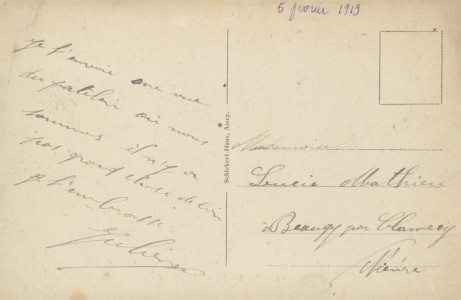 5 février 1919
Je t'envoie une vue
du patelin où nous
sommes il n'y a
pas grand chose de bien
je t'embrasse
Schlékert-Haus, Auey.
Mademoiselle
Lucie Mathieu
à Beaugy par Clamecy
Nièvre